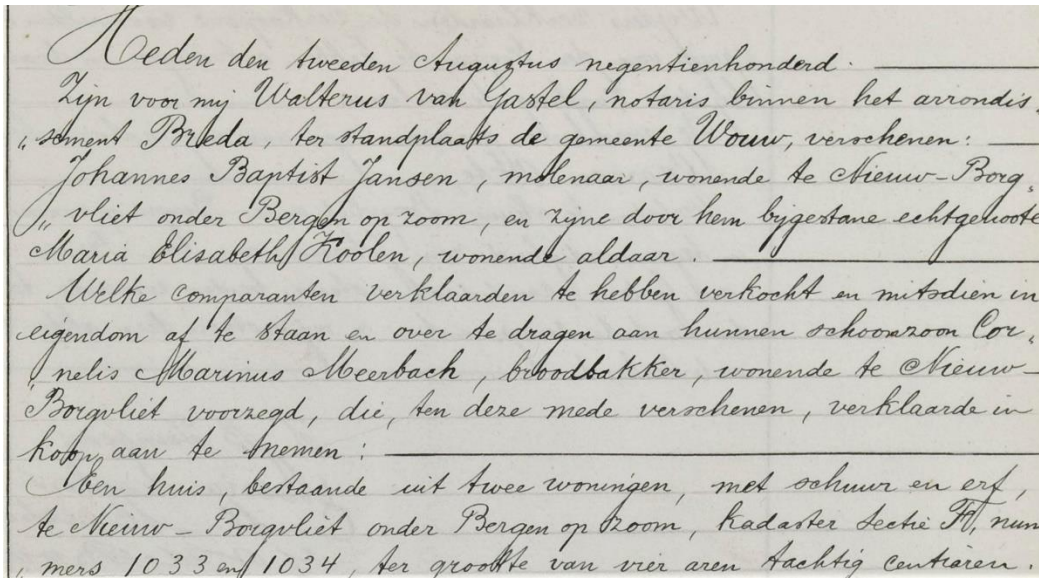 Heden den tweeden Augustus negentienhonderd.
Zijn voor mij Walterus van Gastel, notaris binnen het arrondis„
„sement Breda, ter standplaats de gemeente Wouw, verschenen:
Johannes Baptist Jansen, molenaar, wonende te Nieuw-Borg„
„vliet onder Bergen op zoom, en zijne door hem bijgestane echtgenoote
Maria Elisabeth Koolen, wonende aldaar.
Welke comparanten verklaarden te hebben verkocht en mitsdien in
eigendom af te staan en over te dragen aan hunnen schoonzoon Cor„
„nelis Marinus Meerbach, broodbakker, wonende te Nieuw-
Borgvliet voorzegd, die, ten deze mede verschenen, verklaarde in
koop aan te nemen:
Een huis, bestaande uit twee woningen, met schuur en erf,
te Nieuw-Borgvliet onder Bergen op zoom, kadaster sectie F, num„
„mers 1033 en 1034, ter grootte van vier aren tachtig centiaren.